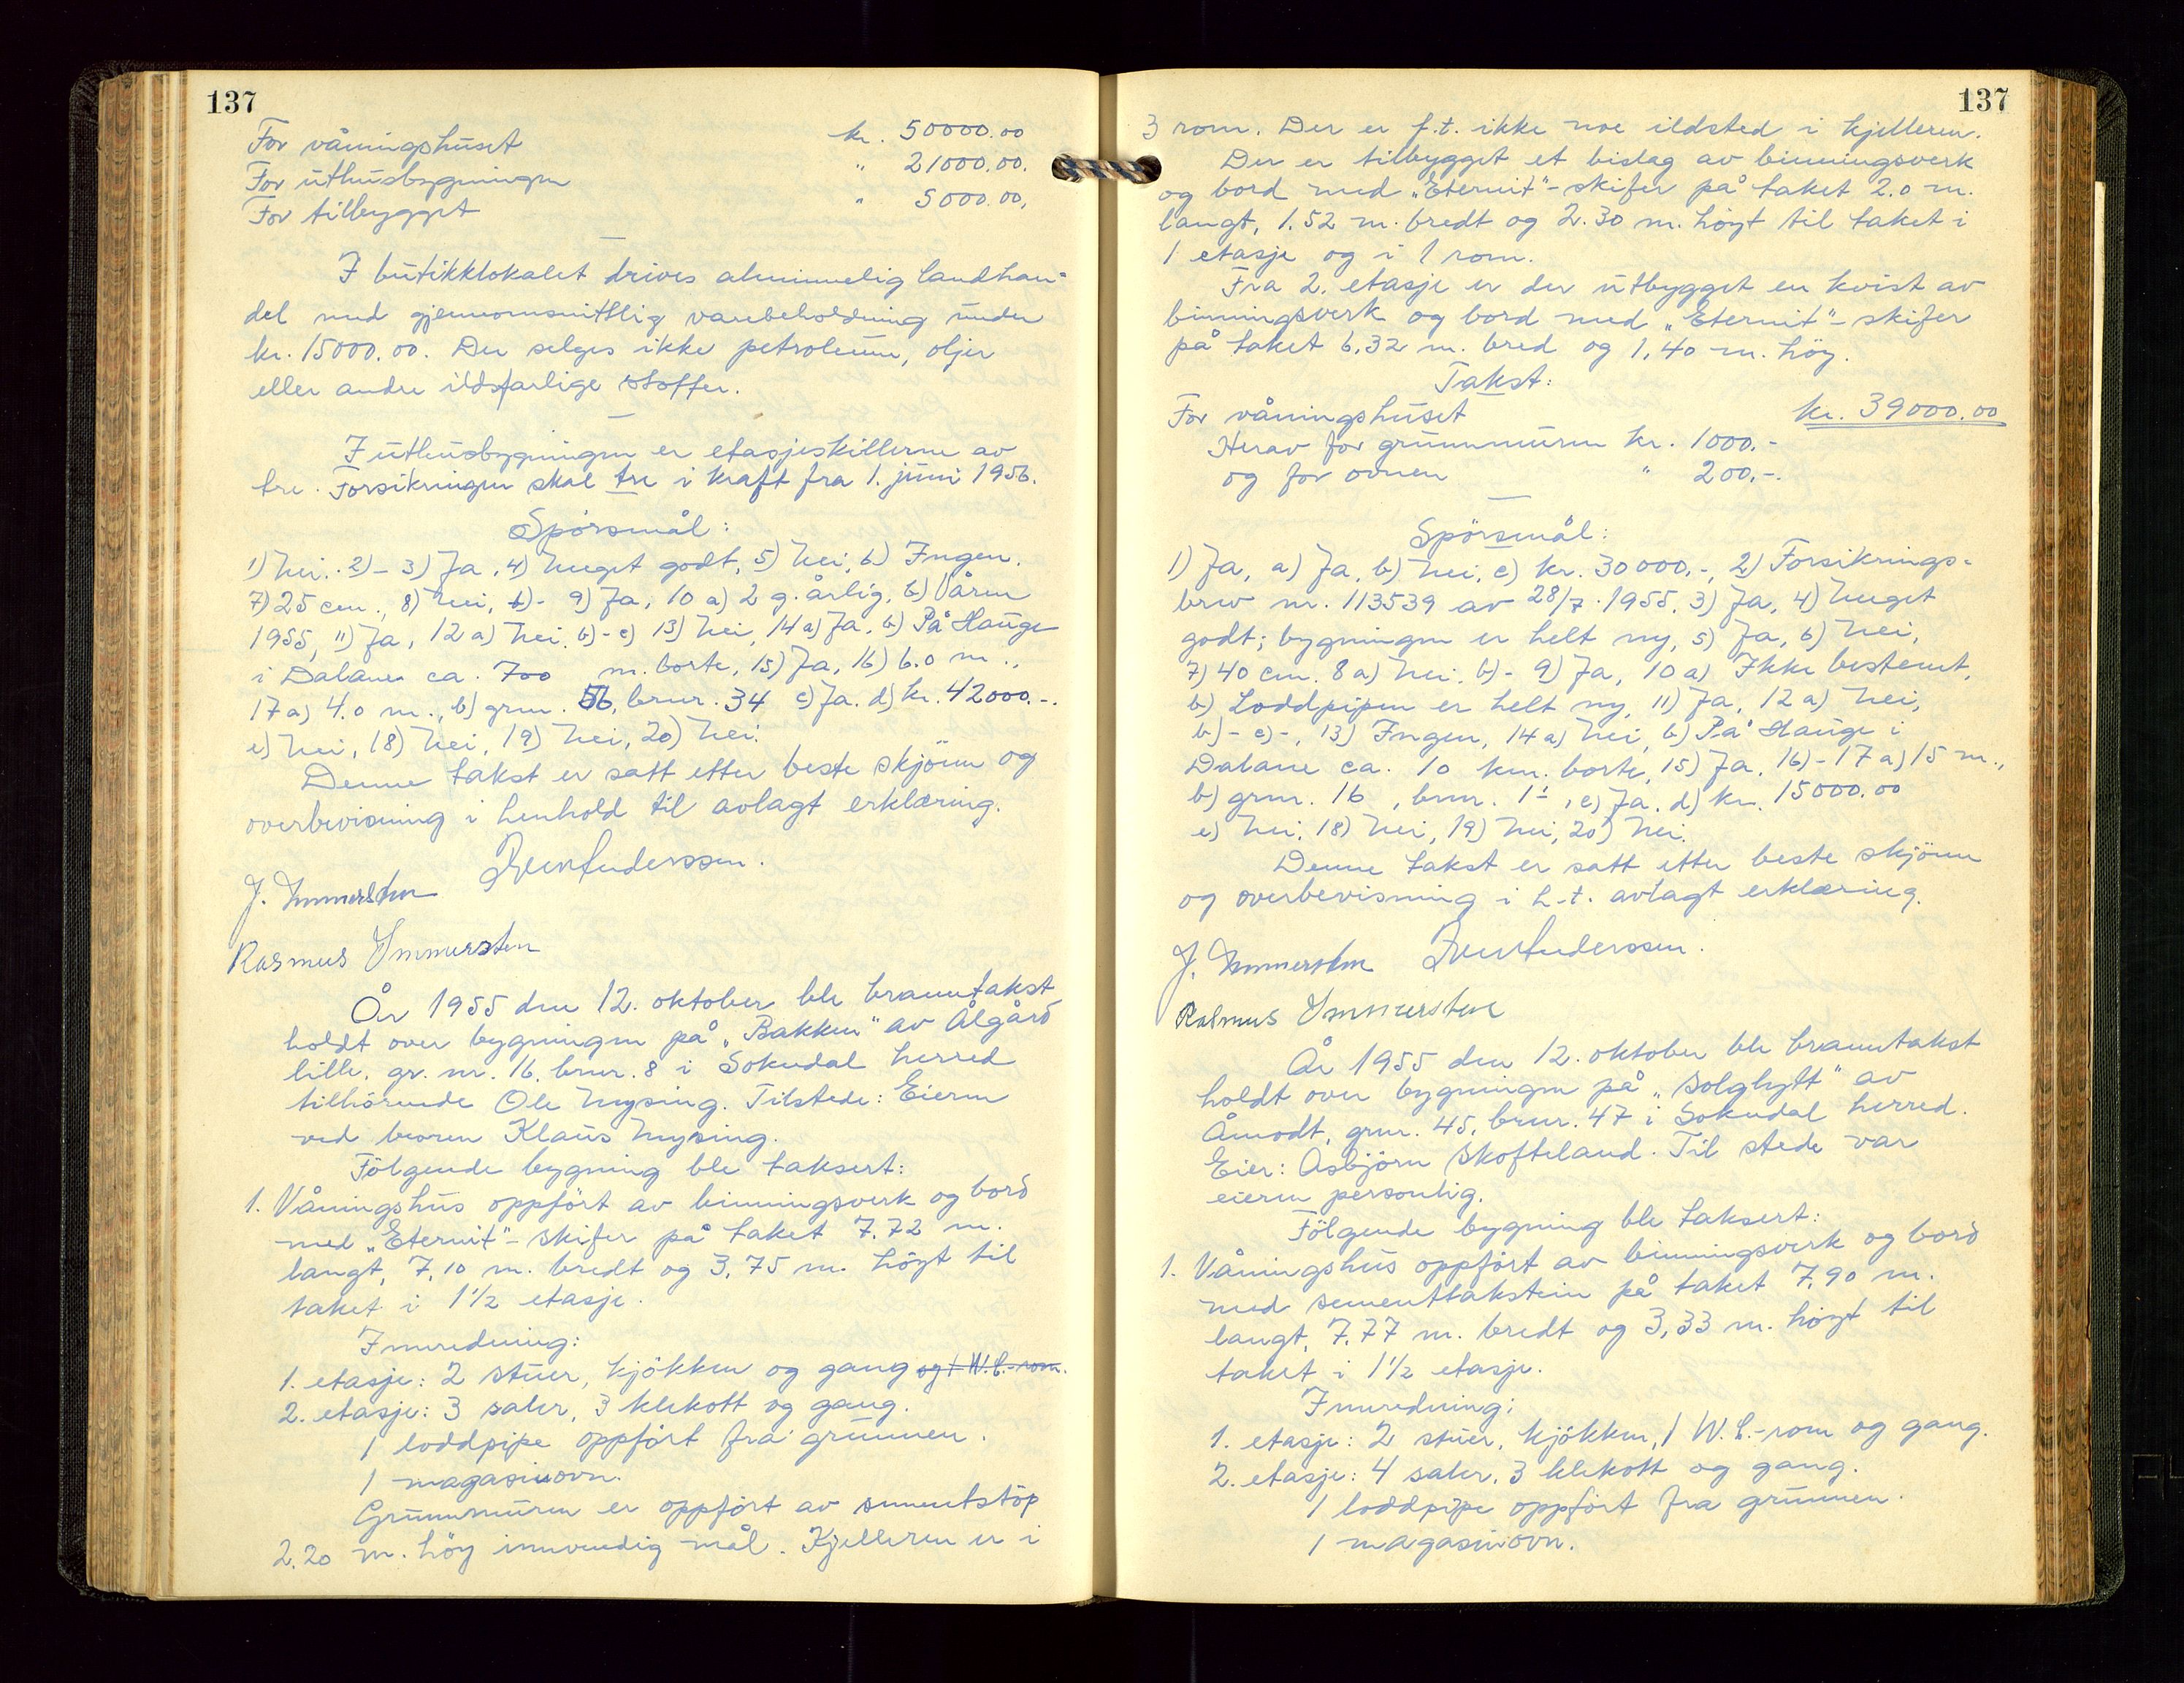 137
For våningshuset kr. 50000.00
For uthusbygningen " 21000.00.
For tilbygget " 5000.00,
I butikklokalet drives alminnelig landhan-
del med gjennomsnittlig varebeholdning under
kr. 15000.00. Der selges ikke petroleum, oljer
eller andre ildsfarlige stoffer.
I uthusbygningen er etasjeskillerne av
tre. Forsikringen skal tre i kraft fra 1. juni 1956.
Spörsmål:
1) Nei. 2)- 3) Ja, 4) Meget godt, 5) Nei, 6) Ingen.
7) 25 cm., 8) Nei, b)- 9) Ja, 10 a) 2 g. årlig, b) Våren
1955, 11) Ja, 12 a) Nei. b)-c) 13) Nei, 14 a) Ja. b) På Hauge
i Dalane ca. 700 m. borte, 15) Ja, 16) 6.0 m.,
17 a) 4.0 m., b) grnr. 56, brnr. 34 c) Ja. d) kr. 42000.-.
e) Nei, 18) Nei, 19) Nei, 20) Nei.
Denne takst er satt etter beste skjönn og
overbevisning i henhold til avlagt erklæring.
J. Immerstein
Rasmus Immerstein
År 1955 den 12. oktober ble branntakst
holdt over bygningen på „Bakken" av Ålgård
lille, gr. nr. 16, brnr. 8 i Sokndal herred
tilhörende Ole Mysing. Tilstede: Eieren
ved broren Klaus Mysing.
Fölgende bygning ble taksert:
1. Våningshus oppfört av binningsverk og bord
med „Eternit"-skifer på taket 7.72 m.
langt, 7,10 m. bredt og 3,75 m. höyt til
taket i 1½ etasje.
Innredning:
1. etasje: 2 stuer, kjökken og gang og 1 W.C.-rom.
2. etasje: 3 saler, 3 klekott og gang.
1 loddpipe oppfört fra grunnen.
1 magasinovn.
Grunnmuren er oppfört av sementstöp
2,20 m. höy innvendig mål. Kjelleren er i
137
3 rom. Der er f.t. ikke noe ildsted i kjelleren.
Der er tilbygget et bislag av binningsverk
og bord med „Eternit"-skifer på taket 2.0 m.
langt, 1.52 m. bredt og 2.30 m. höyt til taket i
1 etasje og i 1 rom.
Fra 2. etasje er der utbygget en kvist av
binningsverk og bord med „Eternit"-skifer
på taket 6,32 m. bred og 1,40 m. höy.
Takst:
For våningshuset kr. 39000.00
Herav for grunnmuren kr. 1000.-
og for ovnen " 200.-.
Spörsmål:
1) Ja, a) Ja, b) Nei, c) kr. 30000.-, 2) Forsikrings-
brev nr. 113539 av 28/7. 1955, 3) Ja, 4) Meget
godt; bygningen er helt ny, 5) Ja, 6) Nei,
7) 40 cm. 8 a) Nei. b)- 9) Ja, 10 a) Ikke bestemt,
b) Loddpipen er helt ny, 11) Ja, 12 a) Nei,
b)- c)-, 13) Ingen, 14 a) Nei, b) På Hauge i
Dalane ca. 10 km. borte, 15) Ja, 16)- 17 a) 15 m.,
b) grnr. 16, brnr. 1, c) Ja. d) kr. 15000.00
e) Nei. 18) Nei, 19) Nei, 20) Nei.
Denne takst er satt etter beste skjönn
og overbevisning i h.t. avlagt erklæring.
J. Immerstein
Rasmus Immerstein
År 1955 den 12. oktober ble branntakst
holdt over bygningen på „Solglytt" av
Åmodt, grnr. 45, brnr. 47 i Sokndal herred.
Eier: Asbjörn Skofteland. Til stede var
eieren personlig.
Fölgende bygning ble taksert:
1. Våningshus oppfört av binningsverk og bord
med sementtakstein på taket 7,90 m.
langt, 7.77 m. bredt og 3,33 m. höyt til
taket i 1½ etasje.
Innredning:
1. etasje: 2 stuer, kjökken, 1 W.C.-rom og gang.
2. etasje: 4 saler, 3 klekott og gang.
1 loddpipe oppfört fra grunnen.
1 magasinovn.